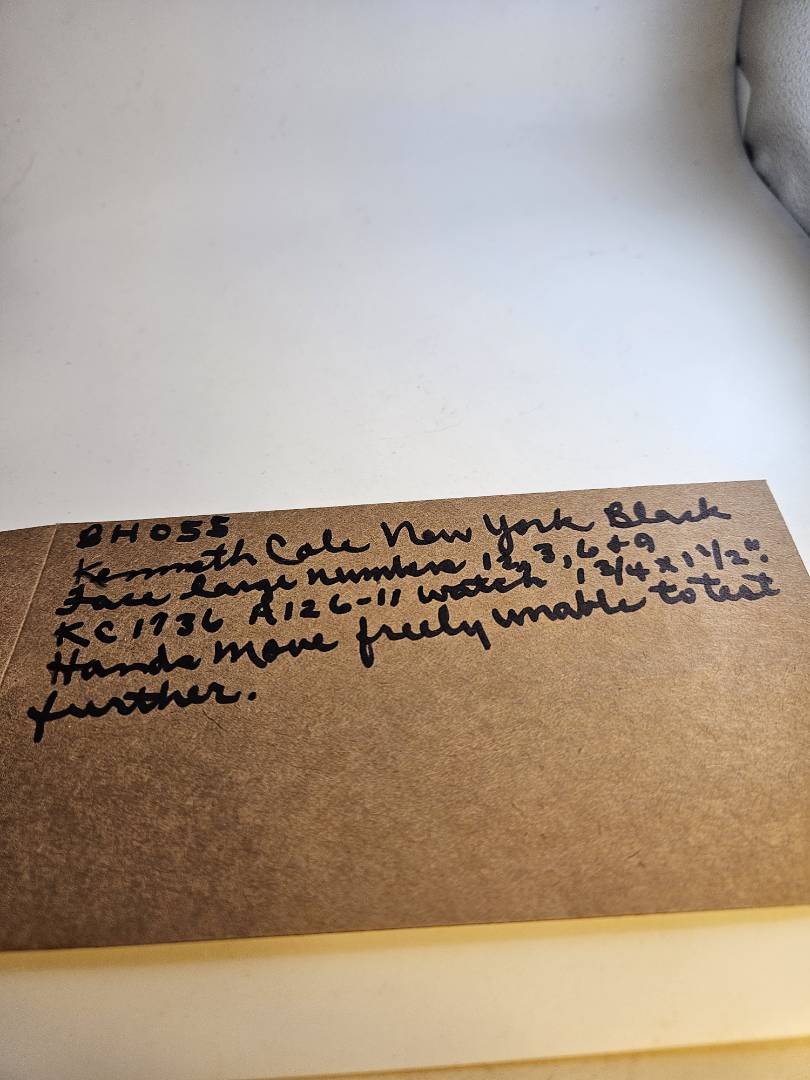 BH055
Kenneth Cole New York Black
Face large numbers 12, 3, 6 + 9
KC1736 A126-11 watch 1 3/4 x 1 1/2".
Hands move freely unable to test
further.